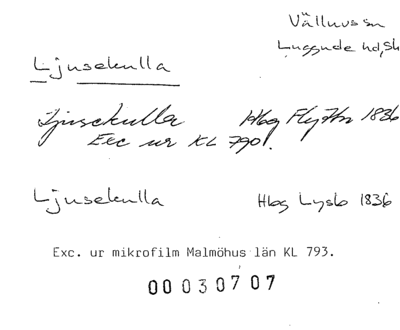 Välluvs sn
Luggude hd, Sk
Ljusekulla
Ljusekulla Hbg Flyttn 1836
Exc ur KL 790.
Ljusekulla Hbg Lysb 1836
Exc. ur mikrofilm Malmöhus län KL 793.
00030707